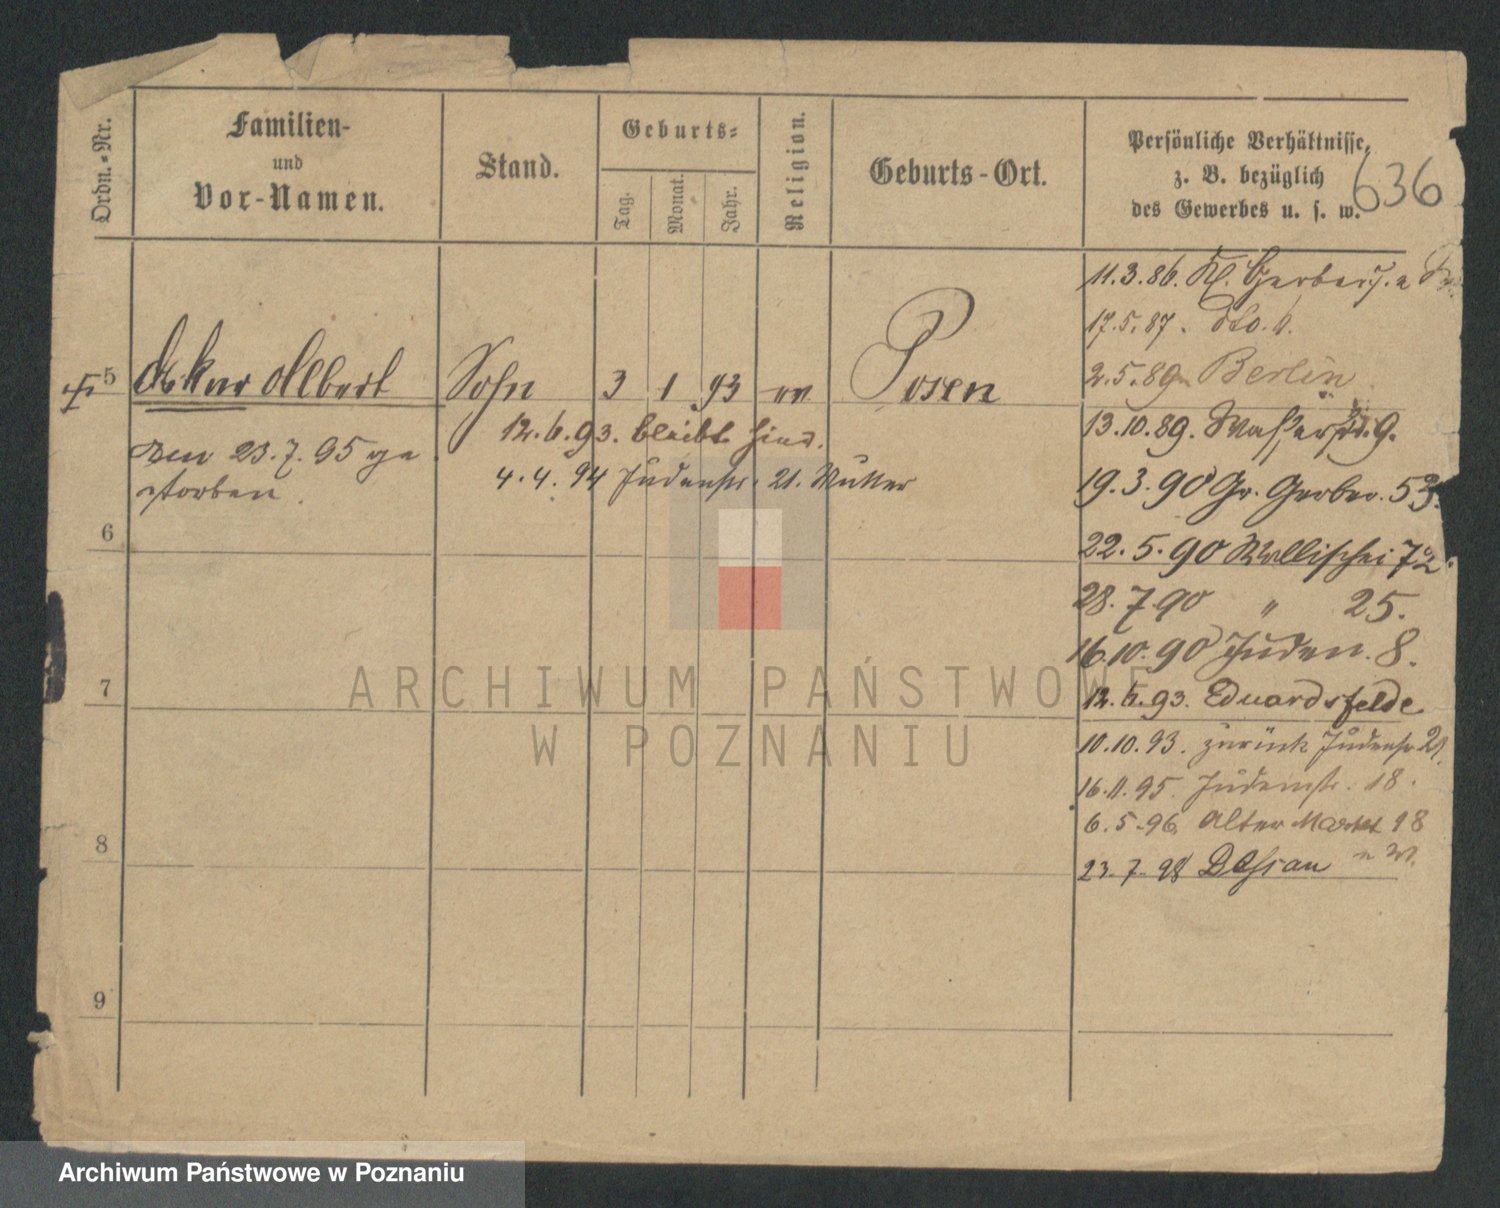 Ordn.-Nr.
Familien-
und
Vor-Namen.
Stand.
Geburts-
Tag.
Monat.
Jahr.
Religion.
Geburts-Ort.
Persönliche Verhältnisse,
z. B. bezüglich
des Gewerbes u. s. w.
636
5 Oskar Albert Sohn 3 1 93 Posen
den 23.7.95 ge
storben.
12.6.93. bleibt hier.
4.4.94 Judenstr. 21. Mutter
11.3.86. Kl. Gerberstr.
17.5.87. dto.
2.5.89 Berlin
13.10.89. Wasserstr. 9.
19.3.90 Gr. Gerber. 53.
22.5.90 Wallischei 72.
28.7.90 " 25.
16.10.90 Juden. 8.
12.6.93. Eduardsfelde
10.10.93. zurück Judenstr 21.
16.11.95. Judenstr. 18.
6.5.96. Alter Markt 18
23.7.98 Dessau
6
7
8
9
ARCHIWUM PAŃSTWOWE
W POZNANIU
Archiwum Państwowe w Poznaniu